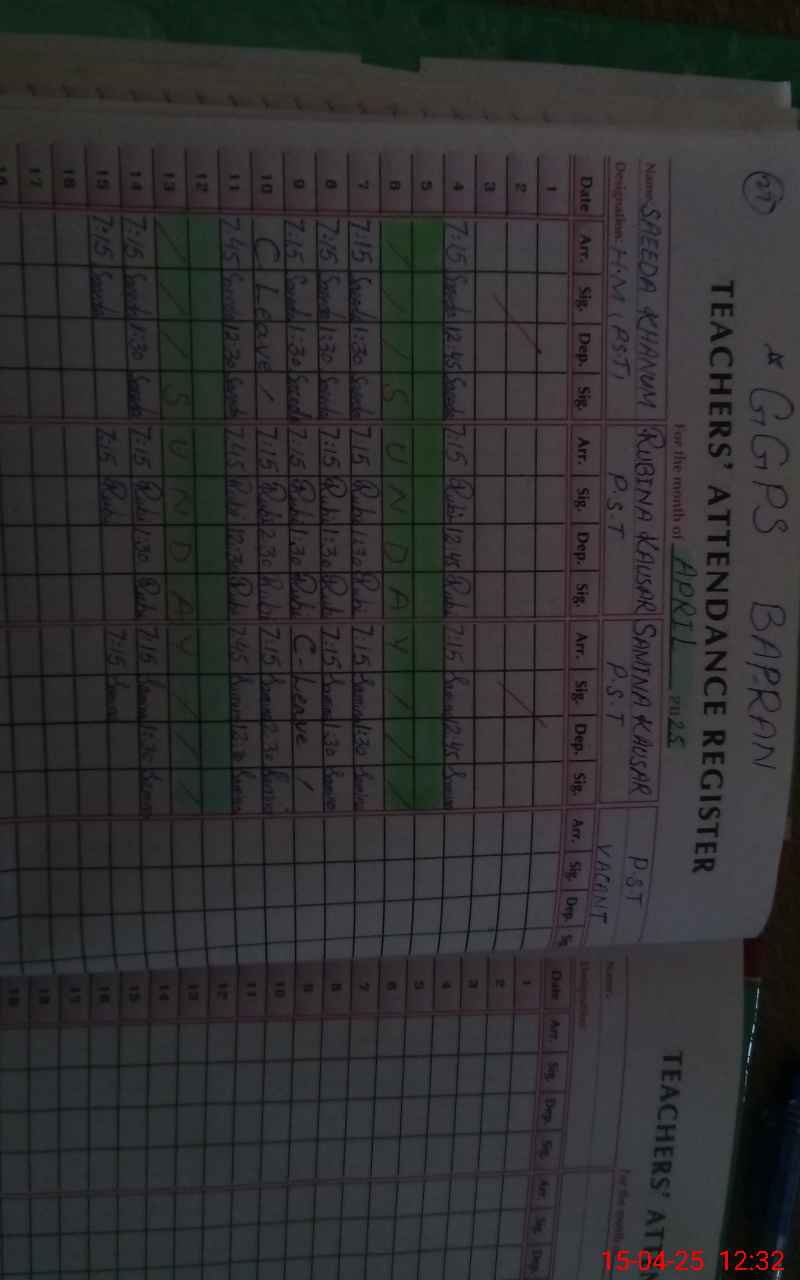 27
* GGPS BAPRAN
TEACHERS' ATTENDANCE REGISTER
For the month of APRIL 2025
Name SAEEDA KHANUM RUBINA KAUSAR SAMINA KAUSAR P.S.T
Designation H.M (P.S.T) P.S.T P.S.T VACANT
Date Arr. Sig. Dep. Sig. Arr. Sig. Dep. Sig. Arr. Sig. Dep. Sig. Arr. Sig. Dep.
1
2
3
4 7:15 Saeeda 12:45 Saeeda 7:15 Rubi 12:45 Rubi 7:15 Samina 12:45 Samina
5
6 S U N D A Y
7 7:15 Saeeda 1:30 Saeeda 7:15 Rubi 1:30 Rubi 7:15 Samina 1:30 Samina
8 7:15 Saeeda 1:30 Saeeda 7:15 Rubi 1:30 Rubi 7:15 Samina 1:30 Samina
9 7:15 Saeeda 1:30 Saeeda 7:15 Rubi 1:30 Rubi C-Leave /
10 C Leave / 7:15 Rubi 2:30 Rubi 7:15 Samina 2:30 Samina
11 7:45 Saeeda 12:30 Saeeda 7:45 Rubi 12:30 Rubi 7:45 Samina 12:30 Samina
12
13 S U N D A Y
14 7:15 Saeeda 1:30 Saeeda 7:15 Rubi 1:30 Rubi 7:15 Samina 1:30 Samina
15 7:15 Saeeda 7:15 Rubi 7:15 Samina
16
17
TEACHERS' ATT
For the month
Name
Designation
Date Arr. Sig. Dep. Sig. Arr. Sig. Dep.
1
2
3
4
5
6
7
8
9
10
11
12
13
14
15
16
17
18
19
15-04-25 12:32